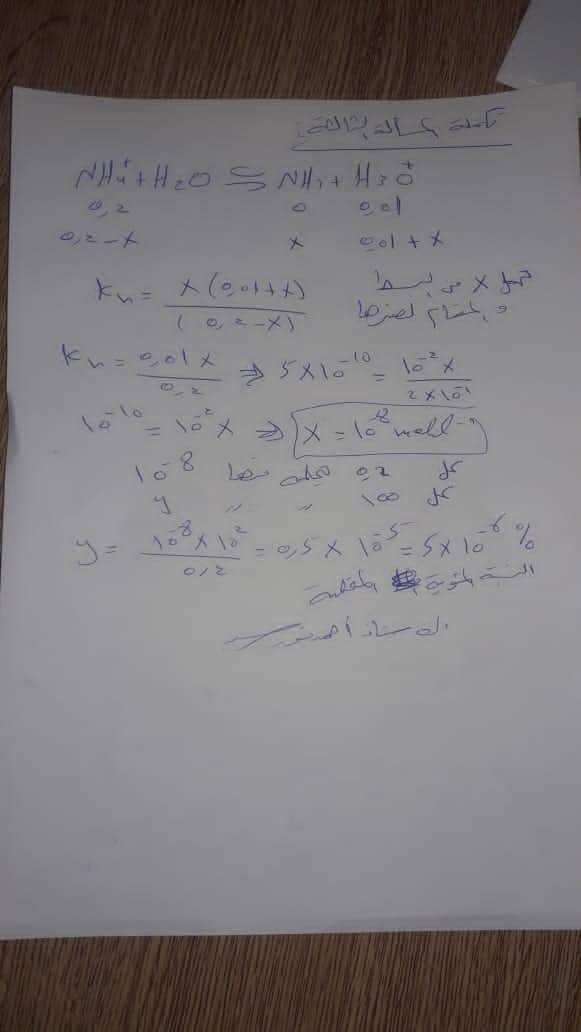 تكملة المسألة الثالثة:
NH₄⁺ + H₂O ⇌ NH₃ + H₃O⁺
0,2 0 0,01
0,2-x x 0,01+x
Kh = x(0,01+x) / (0,2-x) تهمل x من البسط
و المقام لصغرها
Kh = 0,01x / 0,2 ⇒ 5×10⁻¹⁰ = 10⁻²x / 2×10⁻¹
10⁻¹⁰ = 10⁻²x ⇒ x = 10⁻⁸ mol.l⁻¹
كل 0,2 يتحلمه منها 10⁻⁸
كل 100 ,, ,, y
y = 10⁻⁸×10² / 0,2 = 0,5×10⁻⁵ = 5×10⁻⁶ %
النسبة المئوية المتحلمهة